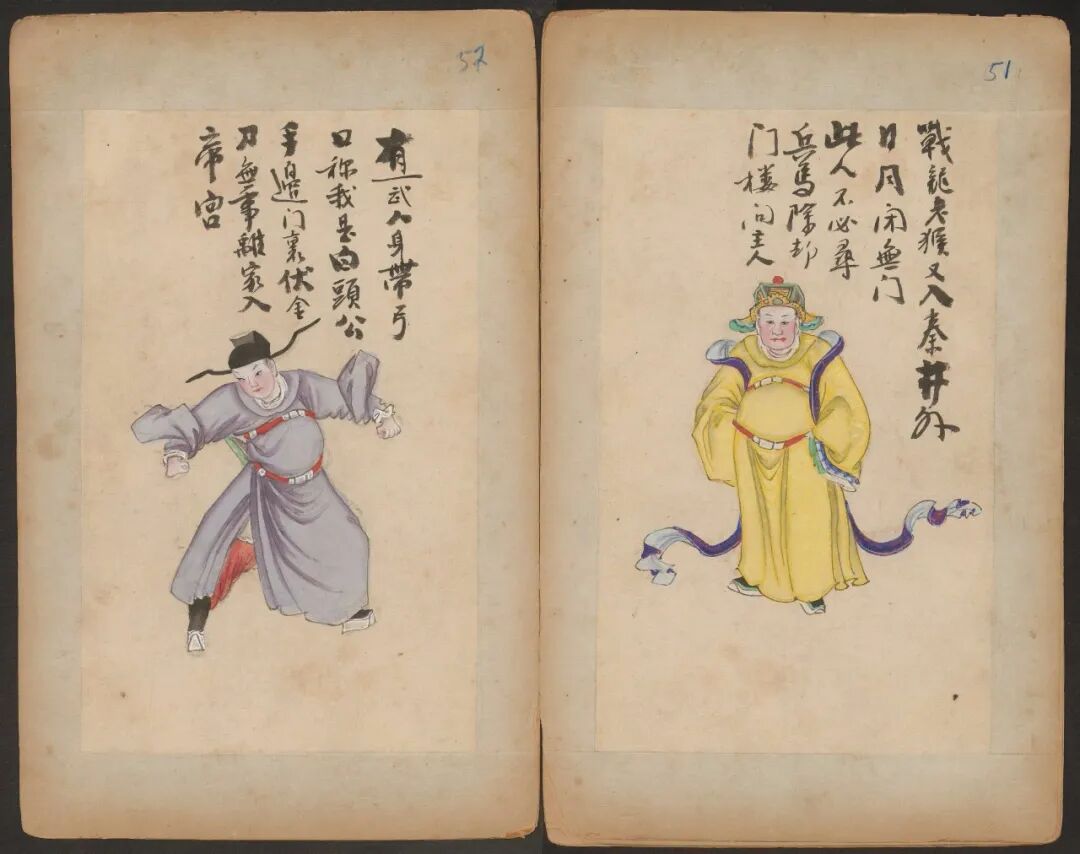 51
戰龍老猴又入秦井外
日月闲無门
此人不必尋
兵馬除却
门楼问主人
52
有一武人身帶弓
口称我是白頭公
手邉门裏伏金
刀無事離家入
帝宮